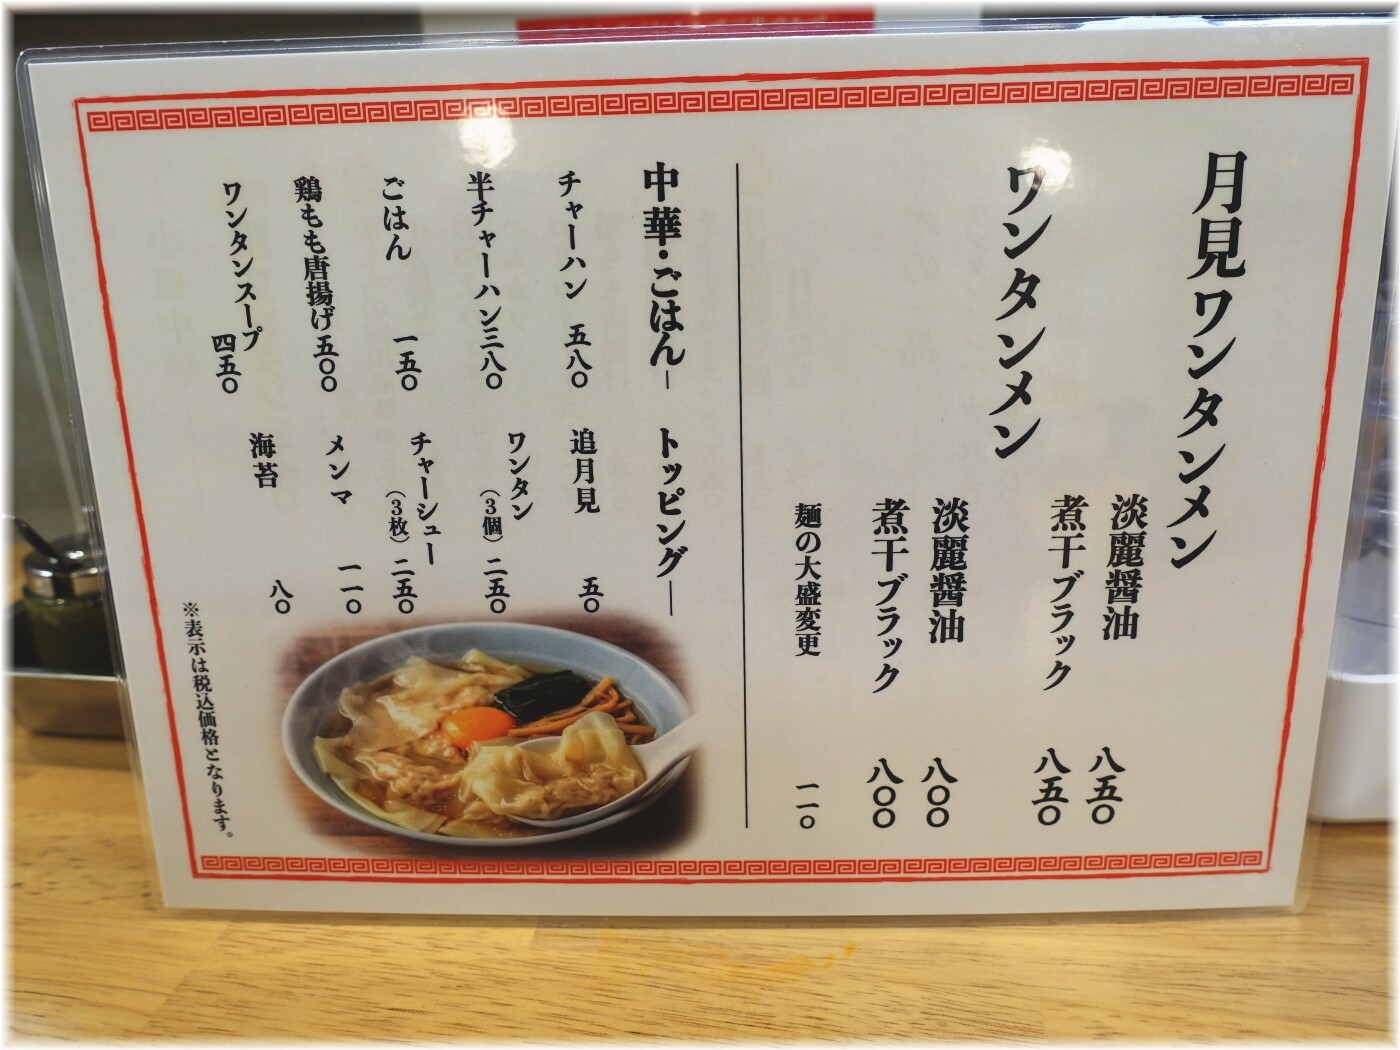 月見ワンタンメン
淡麗醤油 八五〇
煮干ブラック 八五〇
ワンタンメン
淡麗醤油 八〇〇
煮干ブラック 八〇〇
麺の大盛変更 一一〇
中華・ごはん
チャーハン 五八〇
半チャーハン 三八〇
ごはん 一五〇
鶏もも唐揚げ 五〇〇
ワンタンスープ 四五〇
トッピング
追月見 五〇
ワンタン（3個） 二五〇
チャーシュー（3枚） 二五〇
メンマ 一一〇
海苔 八〇
※表示は税込価格となります。